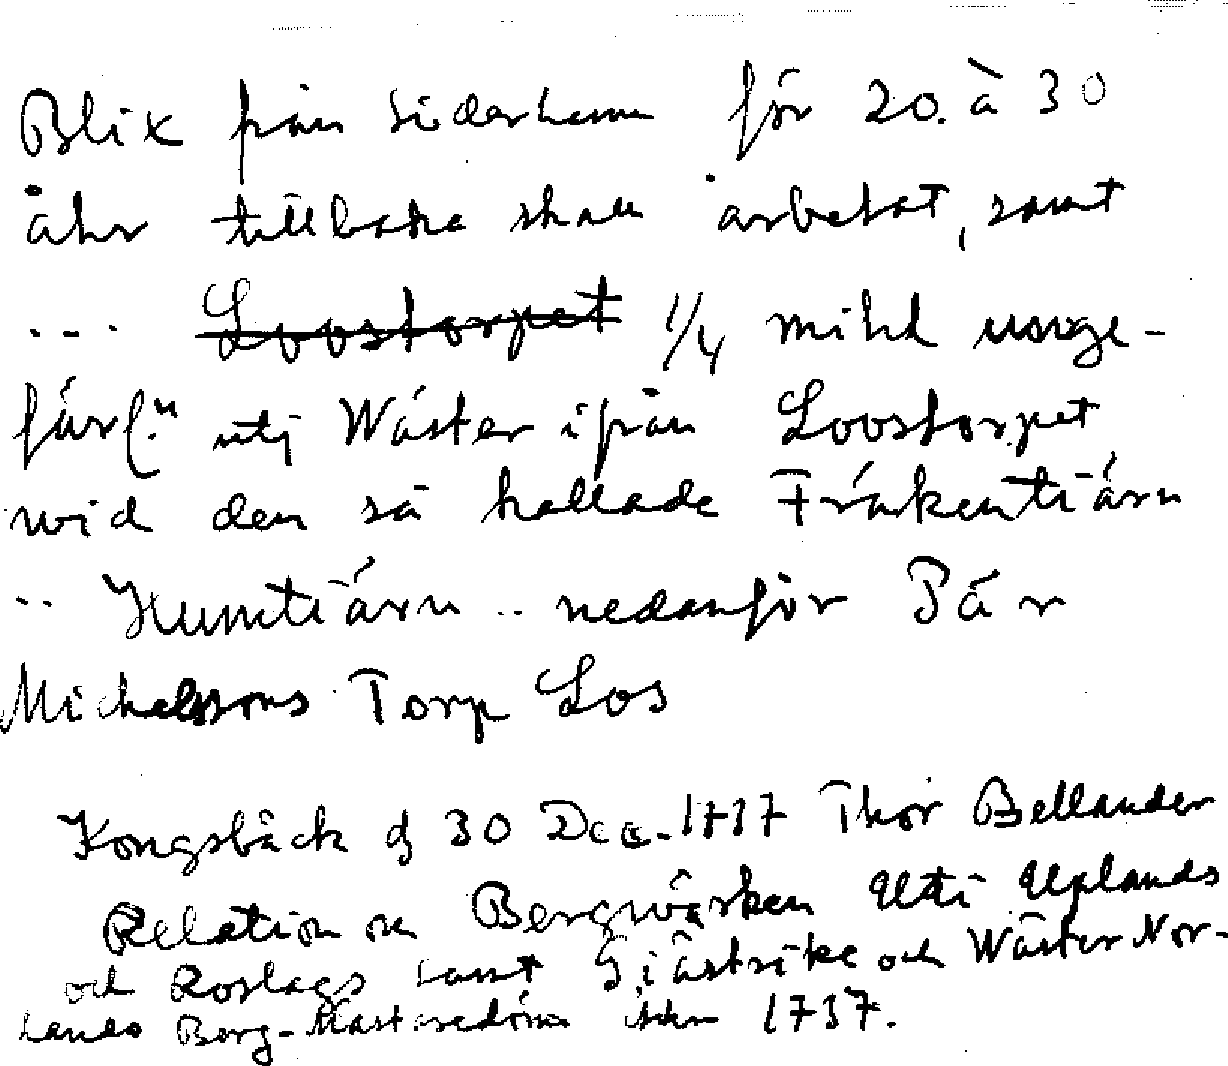 Blix från Söderhamn för 20. à 30
åhr tillbaka skall arbetat, samt
... Loostorpet 1/4 mihl unge-
fär(." utj Wäster ifrån Loostorpet
wid den så kallade Fräkentiärn
.. Humtiärn .. nedanför Pär
Michelssons Torp Los
Kongsbäck d 30 Dec. 1737 Thor Bellander
Relation om Bergwärken Uti Uplands
och Roslags samt Giästrike och Wäster Nor-
lands Berg-Mästaredöme åhr 1737.